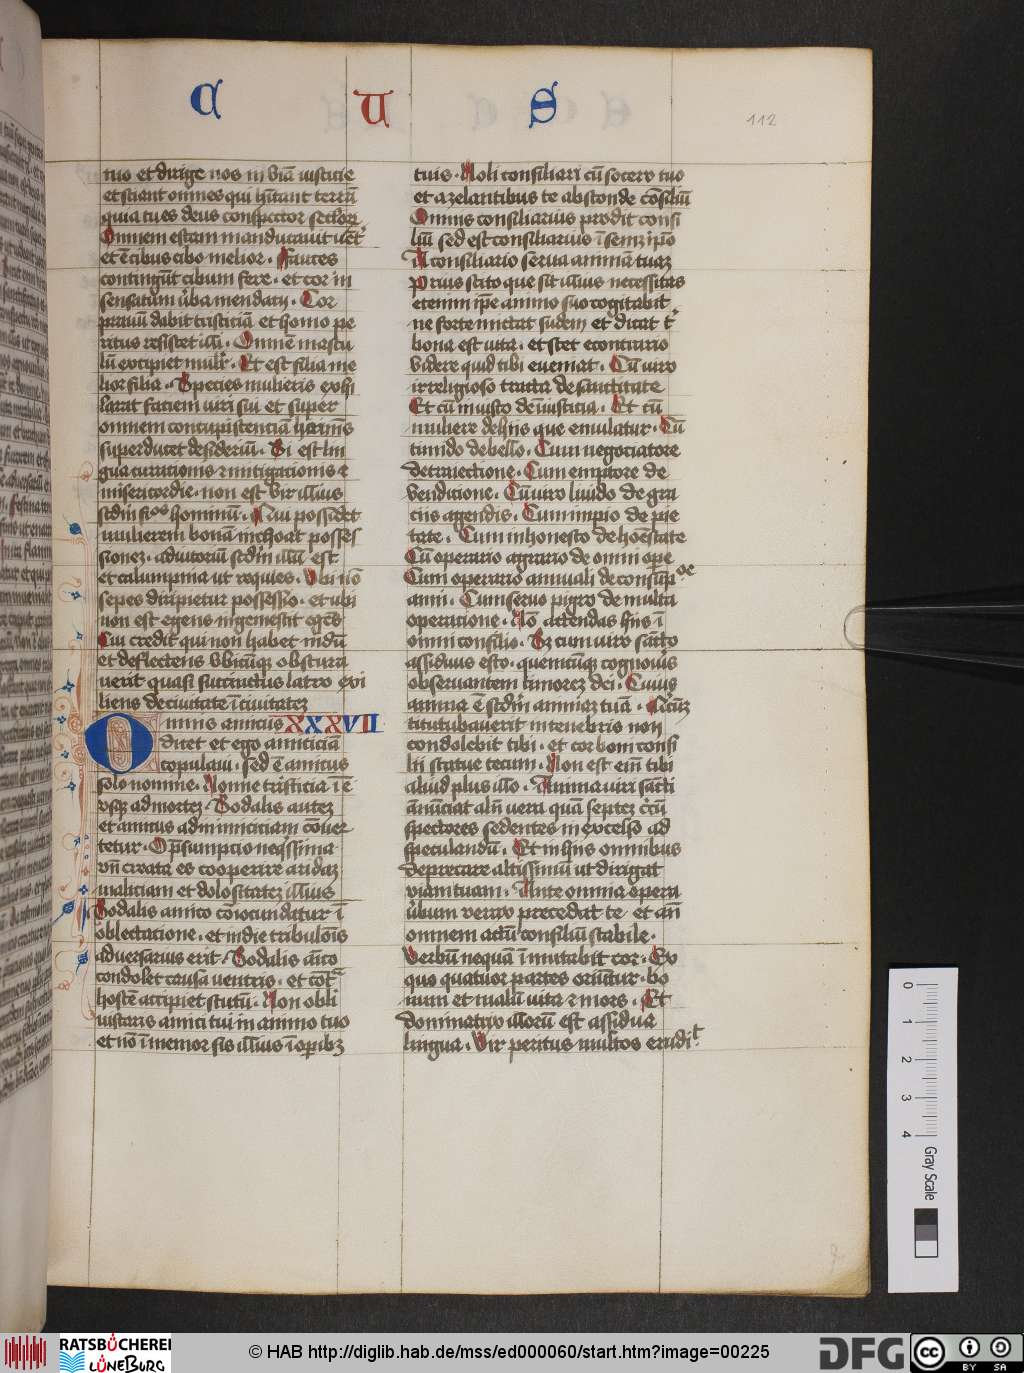 C U S
112
tuo et dirige nos in viā iusticie
et sciant omnes qui hītant terrā
quia tu es deus conspector sectorꝝ
Omnem escam manducauit ūet᷑
et ē cibus cibo melior . Fauces
contingūt cibum fere . et cor in
sensatum ūba mendacij . Cor
prauū dabit tristiciā et homo pe
ritus resistet illi . Omnē mascu
lū excipiet mulr̄ . Et est filia me
lior filia . Species mulieris exhi
larat faciem viri sui et super
omnem concupiscenciā hominis
superducet desideriū . Si est lin
gua curationis ⁊ mitigationis ⁊
misericordie . non est vir illius
scd̄m fi os hominū . Qui possidet
mulierem bonā inchoat posses
sionez . adiutoriū scd̄m illū est
et columpna ut requies . Ubi nō
sepes diripietur possessio . et ubi
non est egens ingemescit
Cui credit qui non habet nidū
et deflectens vbicūqꝫ obscura
uerit quasi succinctus latro exi
liens de ciuitate ī ciuitatez
Omnis amicus XXXVII
dicet et ego amiticiā
copulaui . sed ē amicus
solo nomine . Nonne tristicia īē
vsqꝫ ad mortez . Sodalis autez
et amicus ad inimiciciam cōuer
tetur . O p̄sumptio neq̄ssima
vn̄ creata es cooperire aridaz
maliciam et dolositatez illius
Sodalis amico coniocundatur ī
oblectatione . et in die tribulōnis
aduersarius erit . Sodalis aīco
condolet causa ventris . et
hostē accipiet scutū . Non obli
uiscaris amici tui in animo tuo
et nō īmemor sis illius ī opibꝫ
tuis . Noli consiliari cū socero tuo
et a zelantibus te absconde cōsiliū
Omnis consiliarius prodit consi
liū sed est consiliarius ī semz ip̄o
A consiliario serua animā tuaz
Prius scito que sit illius necessitas
etenim ip̄e animo suo cogitabit
ne forte mictat sudem et dicat t̄
bona est uita . et stet econtrario
videre quid tibi eueniat . Cū viro
irreligioso tracta de sanctitate
Et cū iniusto de iusticia . Et cū
muliere de hijs que emulatur . Cū
timido de bello . Cum negociatore
de traiectione . Cum emptore de
vendicione . Cū viro liuido de gra
ciis agendis . Cum impio de pie
tate . Cum inhonesto de hōestate
Cū operario agrario de omni ope
Cum operario annuali de consūp̄oe
anni . Cum seruo pigro de multa
operatione . Nō attendas hijs ī
omni consilio . Sz cum viro sancto
assiduus esto . quemcūqꝫ cognouis
obseruantem timorez dei . Cuius
anima ē scd̄m animaz tuā .
titutubauerit in tenebris non
condolebit tibi . et cor boni consi
lii statue tecum . Non est eīn tibi
aliud plus illo . Anima viri sancti
ānūciat aln̄ vera quā septez
spectores sedentes in excelso ad
speculandū . Et in hijs omnibus
deprecare altissimū ut dirigat
viam tuam . Ante omnia opera
ūbum verax precedat te . et an̄
omnem actū consiliū stabile .
Verbū nequā īmutabit cor . Ex
quo quatuor partes oriūtur . bo
num et malū vita ⁊ mors . Et
dominatrix illorū est assidua
lingua . Vir peritus multos erudit
0
1
2
3
4
Gray Scale
RATSBÜCHEREI LÜNEBURG
© HAB http://diglib.hab.de/mss/ed000060/start.htm?image=00225
DFG
cc BY SA